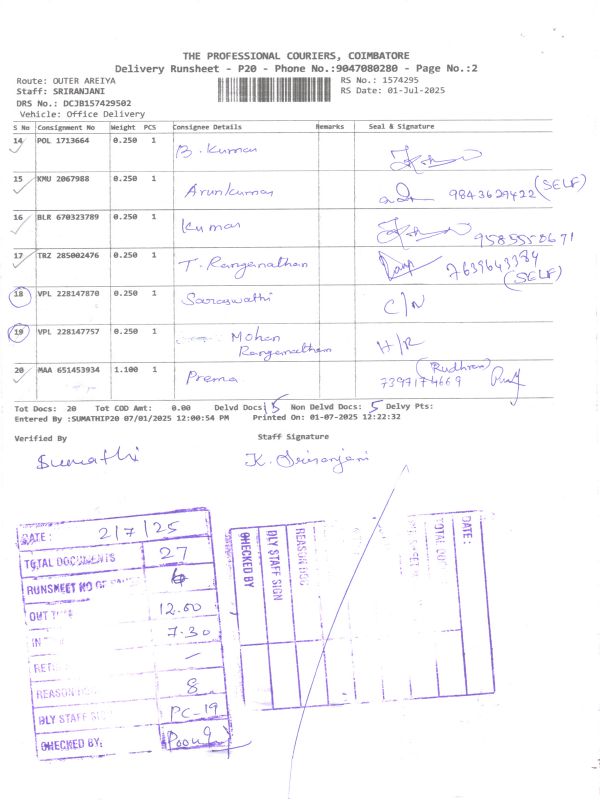 THE PROFESSIONAL COURIERS, COIMBATORE
Delivery Runsheet - P20 - Phone No.:9047080280 - Page No.:2
Route: OUTER AREIYA
RS No.: 1574295
Staff: SRIRANJANI
RS Date: 01-Jul-2025
DRS No.: DCJB157429502
Vehicle: Office Delivery
S No Consignment No Weight PCS Consignee Details Remarks Seal & Signature
14 POL 1713664 0.250 1 B. Kumar
15 KMU 2067988 0.250 1 Arunkumar 9843629422 (SELF)
16 BLR 670323789 0.250 1 Kumar 9585558671
17 TRZ 285002476 0.250 1 T. Ranganathan 7639643384 (SELF)
18 VPL 228147870 0.250 1 Saraswathi C/N
19 VPL 228147757 0.250 1 Mohan Ranganatham H/R
20 MAA 651453934 1.100 1 Prema (Rudhran) 7397174669
Tot Docs: 20 Tot COD Amt: 0.00 Delvd Docs: 15 Non Delvd Docs: 5 Delvy Pts:
Entered By :SUMATHIP20 07/01/2025 12:00:54 PM Printed On: 01-07-2025 12:22:32
Verified By
Staff Signature
Sumathi
K. Srisanjani
DATE: 2/7/25
TOTAL DOCUMENTS 27
RUNSHEET NO OF
OUT 12.00
IN 7.30
RET –
REASON 8
DLY STAFF SIGN PC-19
CHECKED BY:
DATE:
TOTAL DOC
REASON DOC
DLY STAFF SIGN
CHECKED BY